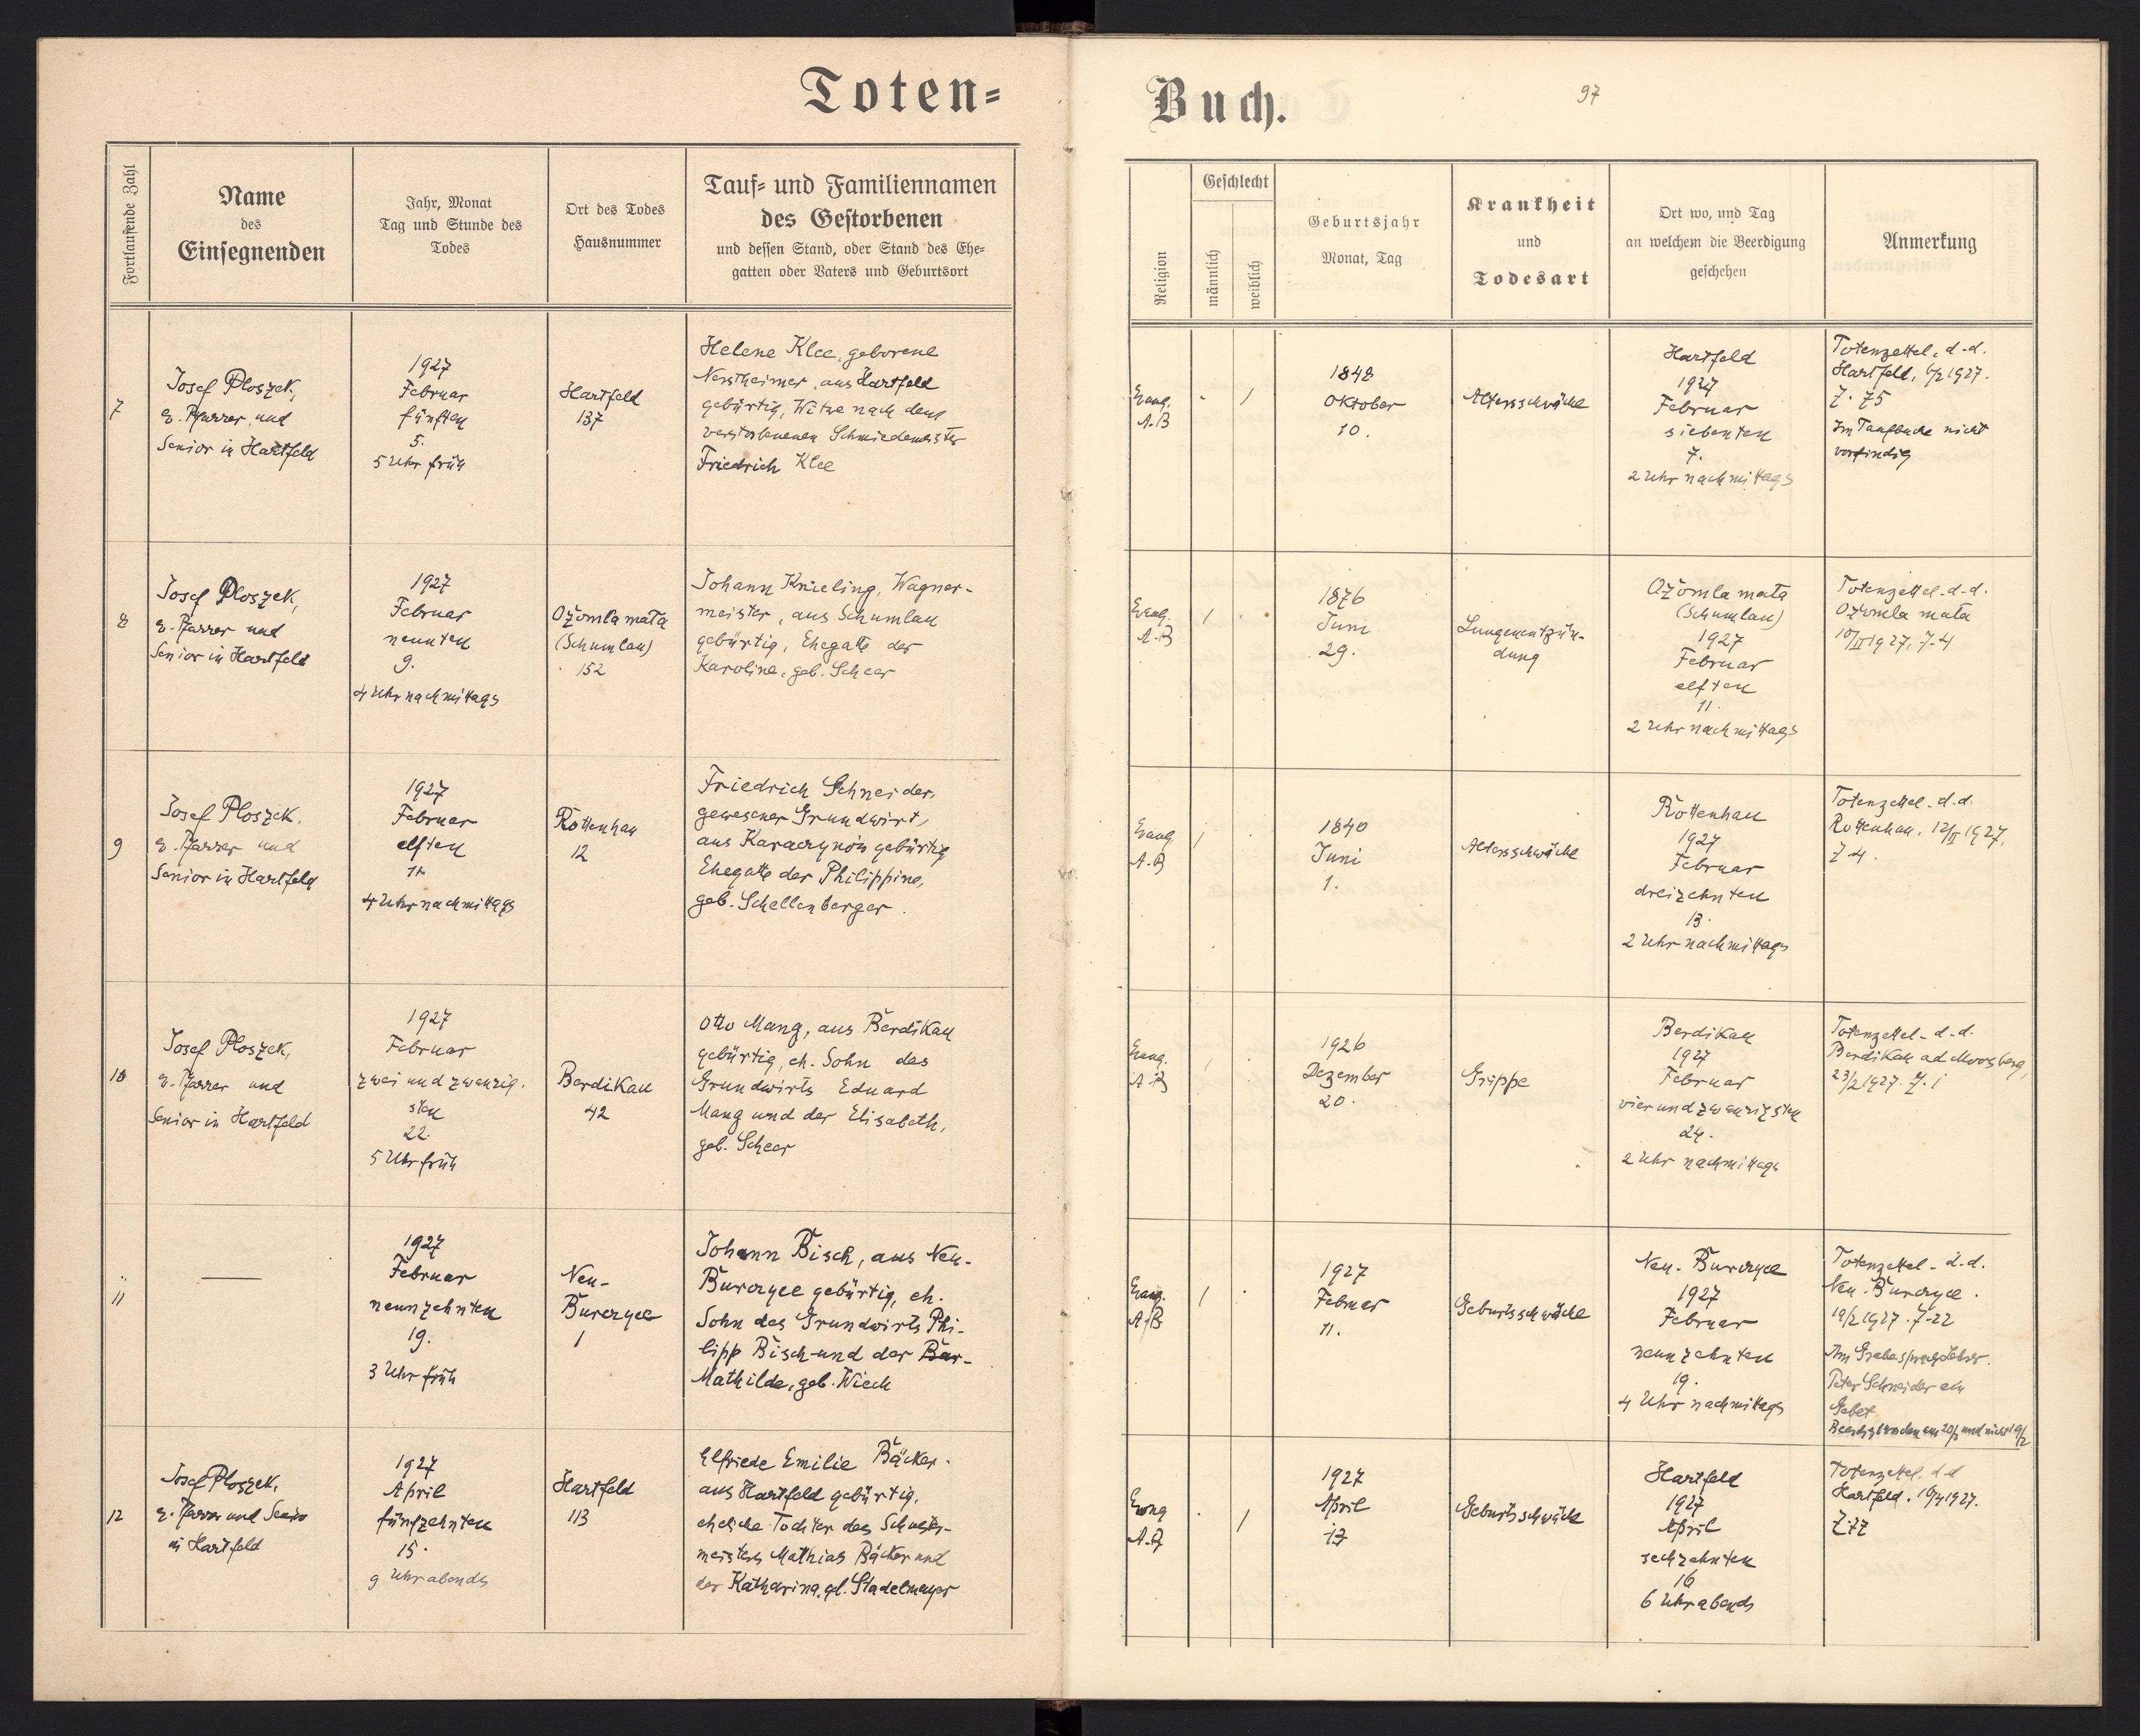 Toten=
Fortlaufende Zahl
Name
des
Einsegnenden
Jahr, Monat
Tag und Stunde des
Todes
Ort des Todes
Hausnummer
Tauf= und Familiennamen
des Gestorbenen
und dessen Stand, oder Stand des Ehe=
gatten oder Vaters und Geburtsort
7
Josef Ploszek,
e. Pfarrer und
Senior in Hartfeld
1927
Februar
fünften
5.
5 Uhr früh
Hartfeld
137
Helene Klee, geborene
aus Hartfeld
gebürtig, Witwe nach dem
verstorbenen Schmiedemeister
Friedrich Klee
8
Josef Ploszek,
e. Pfarrer und
Senior in Hartfeld
1927
Februar
neunten
9.
4 Uhr nachmittags
Ożomla mała
(Schumlau)
152
Johann Knieling, Wagner-
meister, aus Schumlau
gebürtig, Ehegatte der
Karoline, geb. Scheer
9
Josef Ploszek,
e. Pfarrer und
Senior in Hartfeld
1927
Februar
elften
11.
4 Uhr nachmittags
Rottenhan
12
Friedrich Schneider,
gewesener Grundwirt,
aus Karaczynów gebürtig
Ehegatte der Philippine,
geb. Schellenberger.
10
Josef Ploszek,
e. Pfarrer und
Senior in Hartfeld
1927
Februar
zwei und zwanzig.
sten
22.
5 Uhr früh
Berdikau
42
Otto Mang, aus Berdikau
gebürtig, eh. Sohn des
Grundwirts Eduard
Mang und der Elisabeth,
geb. Scheer
11
—
1927
Februar
neunzehnten
19.
3 Uhr früh
Neu-
Burczyce
1
Johann Bisch, aus Neu-
Burczyce gebürtig, eh.
Sohn des Grundwirts Phi-
lipp Bisch und der Bar-
Mathilde, geb. Wiech
12
Josef Ploszek,
e. Pfarrer und Senior
in Hartfeld
1927
April
fünfzehnten
15.
9 Uhr abends
Hartfeld
113
Elfriede Emilie Bäcker.
aus Hartfeld gebürtig,
eheliche Tochter des Schuster-
meisters Mathias Bäcker und
der Katharina, gb. Stadelmayer
Buch.
97
Religion
Geschlecht
männlich
weiblich
Geburtsjahr
Monat, Tag
Krankheit
und
Todesart
Ort wo, und Tag
an welchem die Beerdigung
geschehen
Anmerkung
Evang.
A.B
/
1848
Oktober
10.
Altersschwäche
Hartfeld
1927
Februar
siebenten
7.
2 Uhr nachmittags
Totenzettel, d.d.
Hartfeld, 6/2 1927.
Z. 75
Im Taufbuche nicht
vorfindig
Evang.
A.B
/
1876
Juni
29.
Lungenentzün-
dung
Ożomla mała
(Schumlau)
1927
Februar
elften
11.
2 Uhr nachmittags
Totenzettel d.d.
Ożomla mała
10/II 1927, Z. 4
Evang.
A.B
/
1840
Juni
1.
Altersschwäche
Rottenhan
1927
Februar
dreizehnten
13.
2 Uhr nachmittags
Totenzettel d.d.
Rottenhan, 12/II 1927,
Z 4.
Evang.
A.B
/
1926
Dezember
20.
Grippe
Berdikau
1927
Februar
vierundzwanzigsten
24.
2 Uhr nachmittags
Totenzettel d.d.
Berdikau ad Moosberg,
23/2 1927. Z. 1
Evang.
A.B
/
1927
Februar
11.
Geburtsschwäche
Neu-Burczyce
1927
Februar
neunzehnten
19.
4 Uhr nachmittags
Totenzettel d.d.
Neu-Burczyce.
19/2 1927. Z-22
Am Grabe sprach Lehrer.
Peter Schneider ein
Gebet
am 20/2 und nicht 19/2
Evang
A.B
/
1927
April
13
Geburtsschwäche
Hartfeld
1927
April
sechzehnten
16
6 Uhr abends
Totenzettel, d.d
Hartfeld. 16/4 1927.
Z. 77